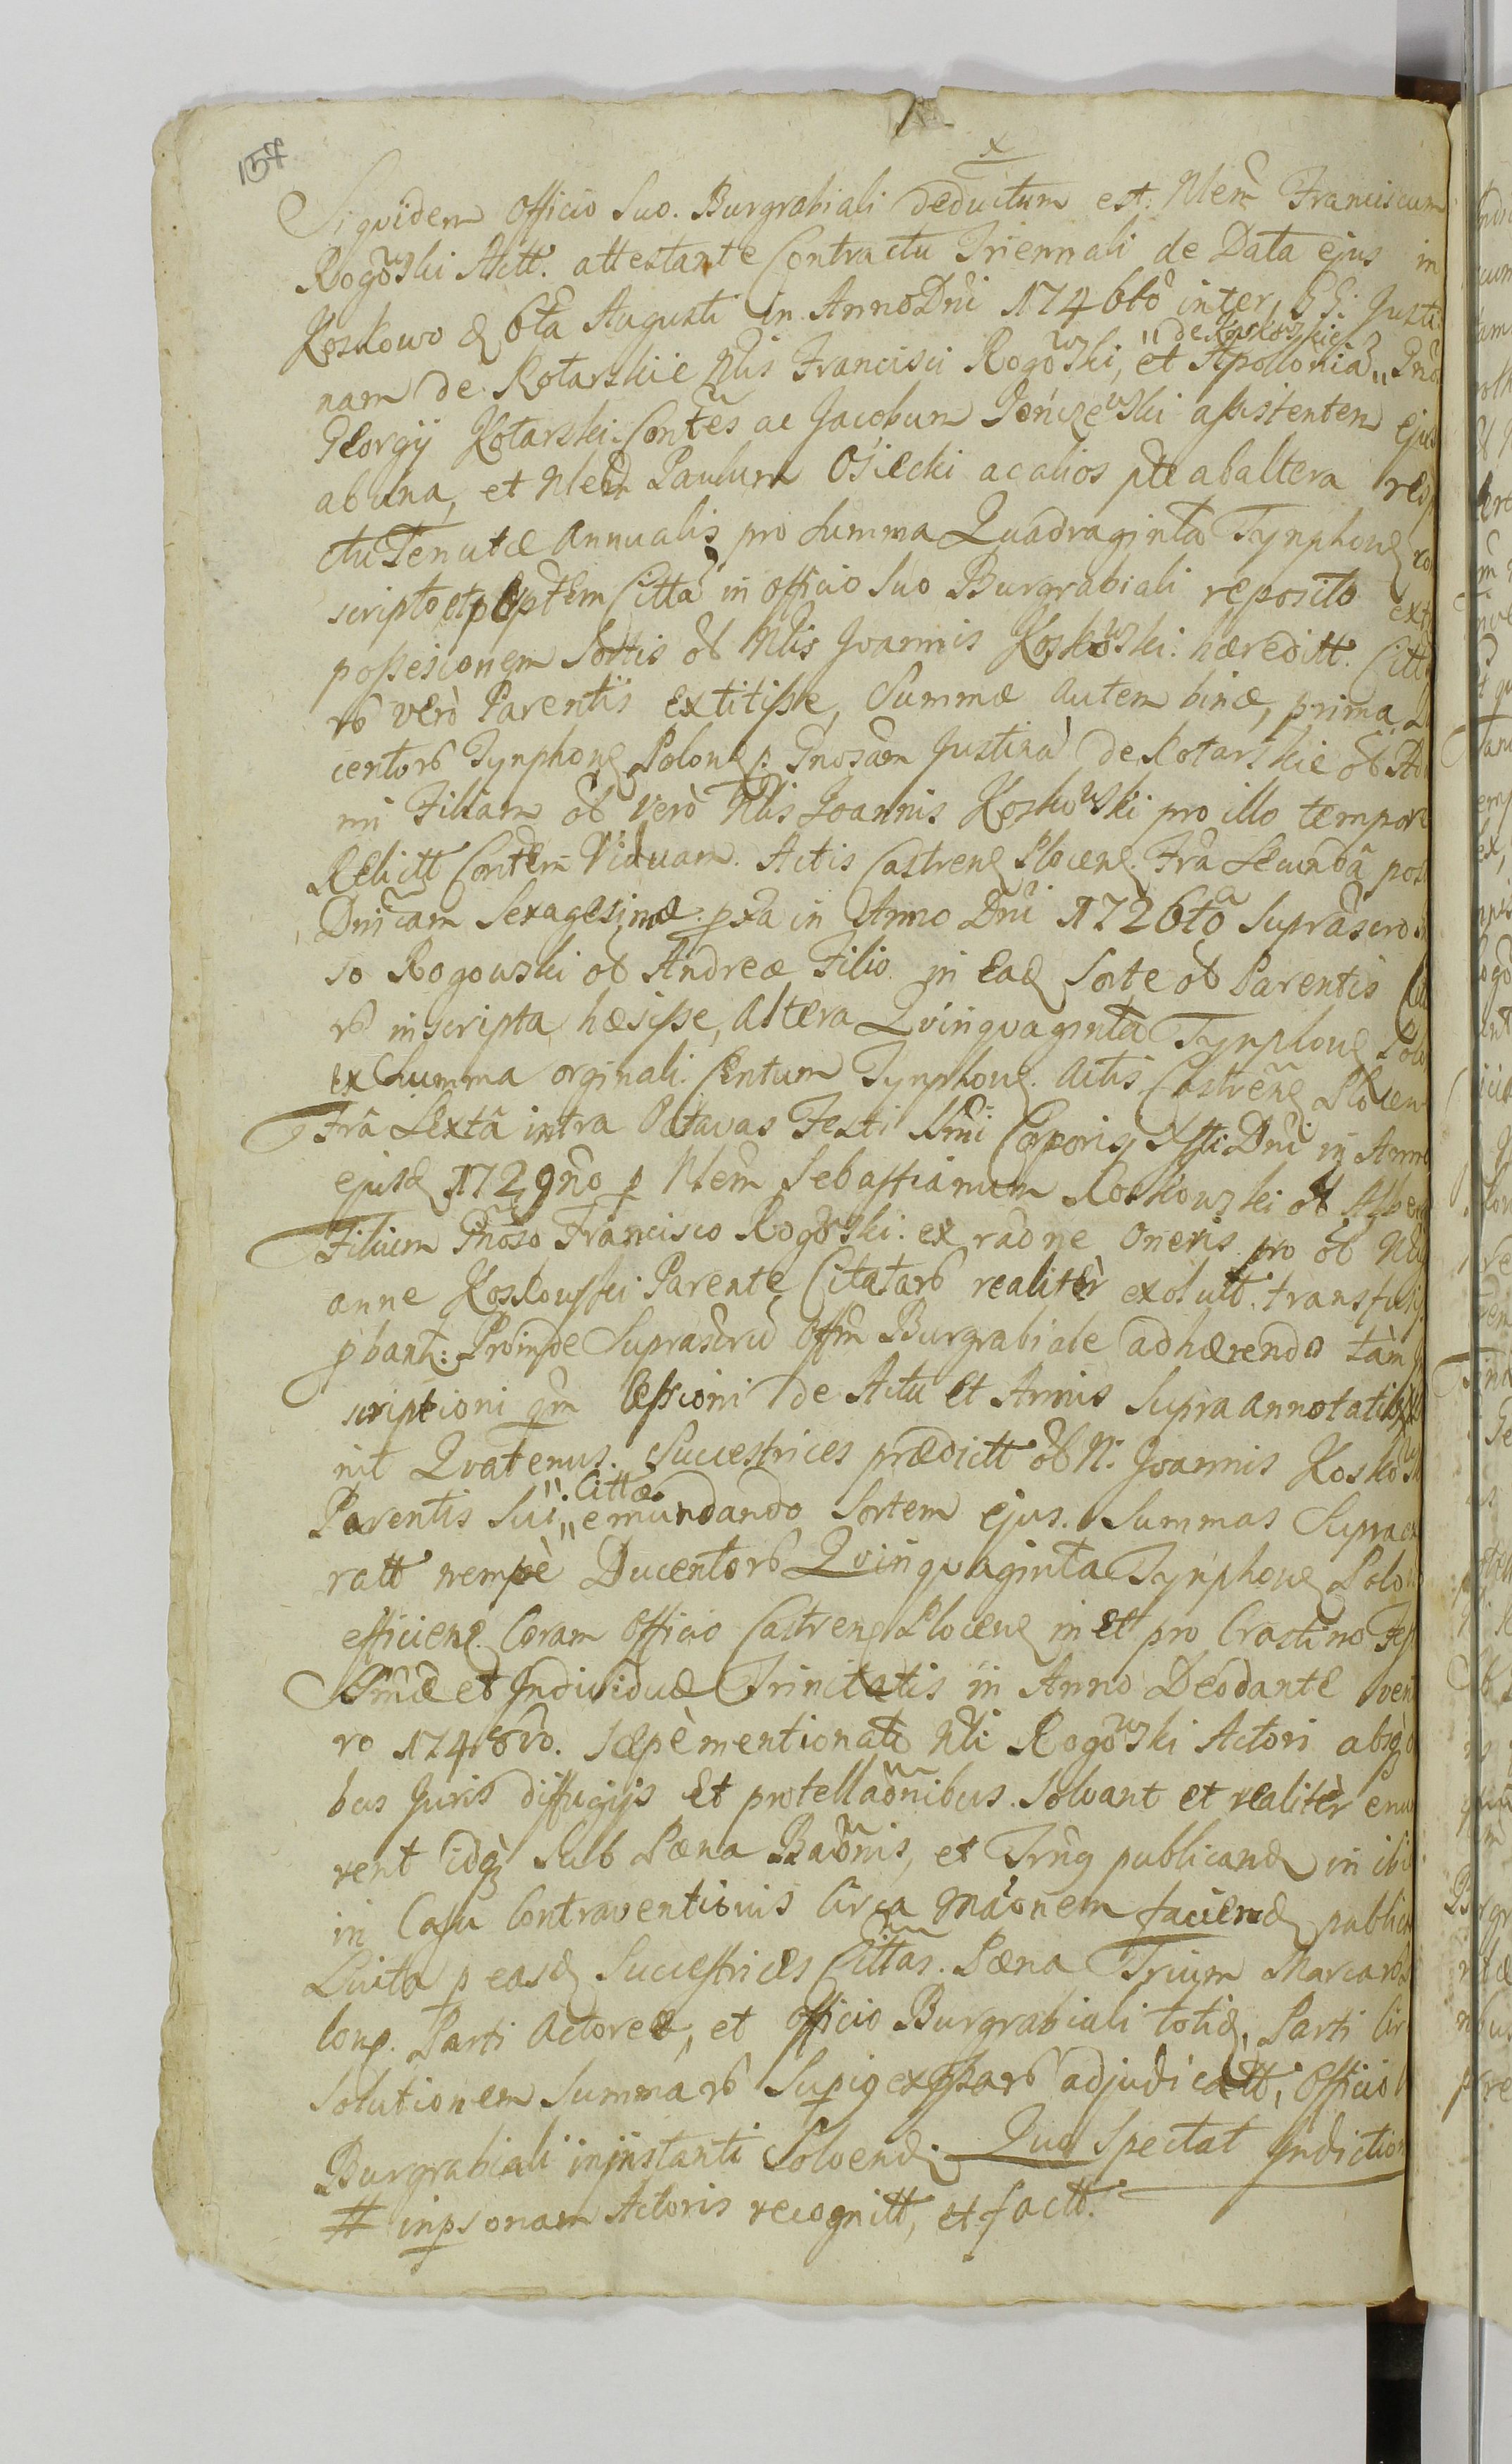 157
x
Siquidem Officio Suo. Burgrabiali deductum est. Nlem Franciscum
Rogowski Actt. attestante Contractu Triennali de Data ejus in
Koskowo d 6ta Augusti in Anno Dni 1746to inter, GG: Justi
nam de Kotarskie Nlis Francisci Rogowski, " de Koskowskie et Apollonia " Gno
Georgij Kotarski. Contes ac Jacobum assistentem ejus
ab una, et Nlem Paulum Osiecki ac alios pte ab altera resp
ctu Tenutæ annualis pro Summa Quadraginta Tymphone
scripto et p Citta in Officio Suo Burgrabiali reposito ext
possesionem Sortis ol Nlis Joannis Koskowski. hæreditt. Citt
rb verò Parentis extitisse, Summæ autem binæ, prima
centorb Tymphone Polone p. Gnosam Justina de Kotarskie ol
mi Filiam ol verò Nlis Joannis Koskowski pro illo tempore
Relictt Contem Viduam. Actis Castrene Plocene. Fra Secunda post
Dnicam Sexagesimæ. pxa in Anno Dni 1726to Suprascro
so Rogowski ol Andreæ Filio in ead Sorte ol Parentis
rb inscripta hæsisse, altera Quinquaginta Tymphone Polo
ex Summa orginali. Centum Tymphone. Actis Castrene Plocen
Fra Sexta intra Octavas Festi Ssmi Corporis Xsti Dni in Anno
ejusd 1729no p Nlem Sebastianum Koskowski ol
Filium Gnoso Francisco Rogowski. ex radne oneris pro ol
anne Koskowski Parente Citatarb realitèr exolutt. transfu
pbant: Proinde Suprascru Offm Burgrabiale adhærendo tàm
scriptioni qm Cessioni de Actu et Annis Supra annotatis
nit Quatenus. Successtrices prædictt ol N. Joannis Kosko
Parentis Sui " Cittæ " emundando Sortem ejus. Summas Supra
ratt nempè Ducentorb Quinquaginta Tymphone Polo
efficiene. Coram Officio Castrene Plocene in et pro Crastino Fes
Ssmæ et Individuæ Trinitatis in Anno Deodante vent
ro 1748vo. sæpè mentionato Nli Rogowski Actori absq
bus Juris diffugijs et protellaonibus. Solvant et realitèr enu
rent idq Sub Pæna Baonis, et Trng publicand in ibi
in Casu Contraventionis circa maonem faciend public
Luita p easd Successtrices Cittas. Pæna Trium Marcarb
lonp. Parti Actoreæ, et Officio Burgrabiali totid, Parti cir
Solutionem Summarb Supig adjudicatt, Officio
Burgrabiali in instanti Solvend. Quo Spectat Indictio
# in psonam Actoris recognitt, et factt.